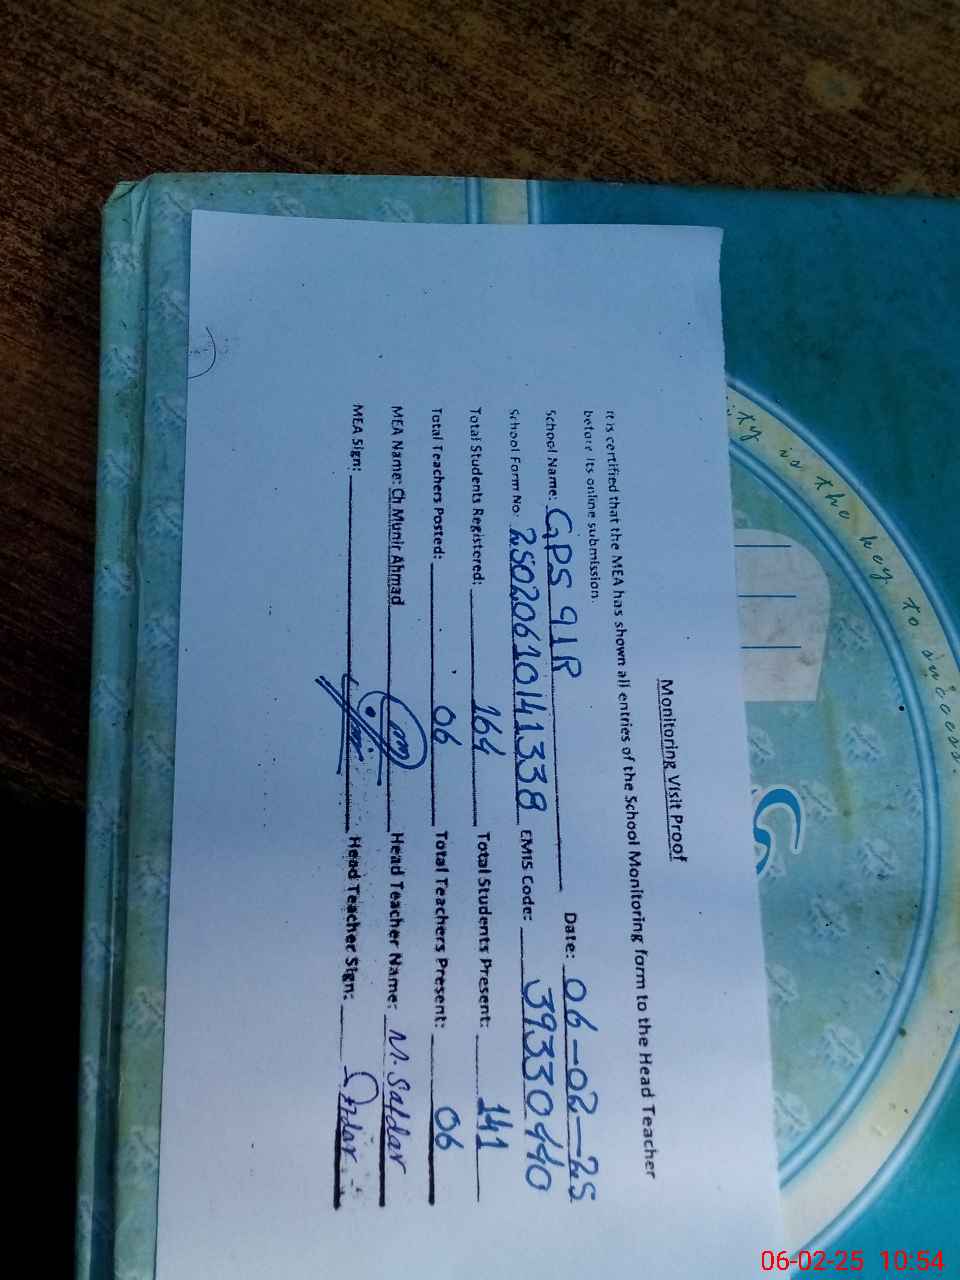 Monitoring Visit Proof
It is certified that the MEA has shown all entries of the School Monitoring form to the Head Teacher
before its online submission.
School Name: GPS 91R Date: 06-02-25
School Form No: 2502061014 1338 EMIS Code: 39330440
Total Students Registered: 164 Total Students Present: 141
Total Teachers Posted: 06 Total Teachers Present: 06
MEA Name: Ch Munir Ahmad Head Teacher Name: M. Safdar
MEA Sign: Head Teacher Sign:
ity is the key to success.
06-02-25 10:54